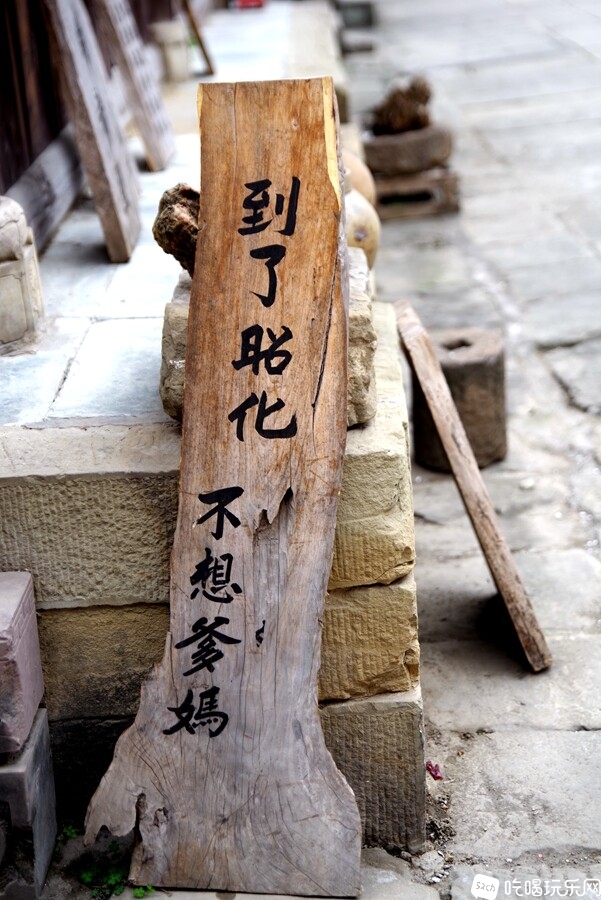 到了昭化
不想爹媽
52ch 吃喝玩乐网